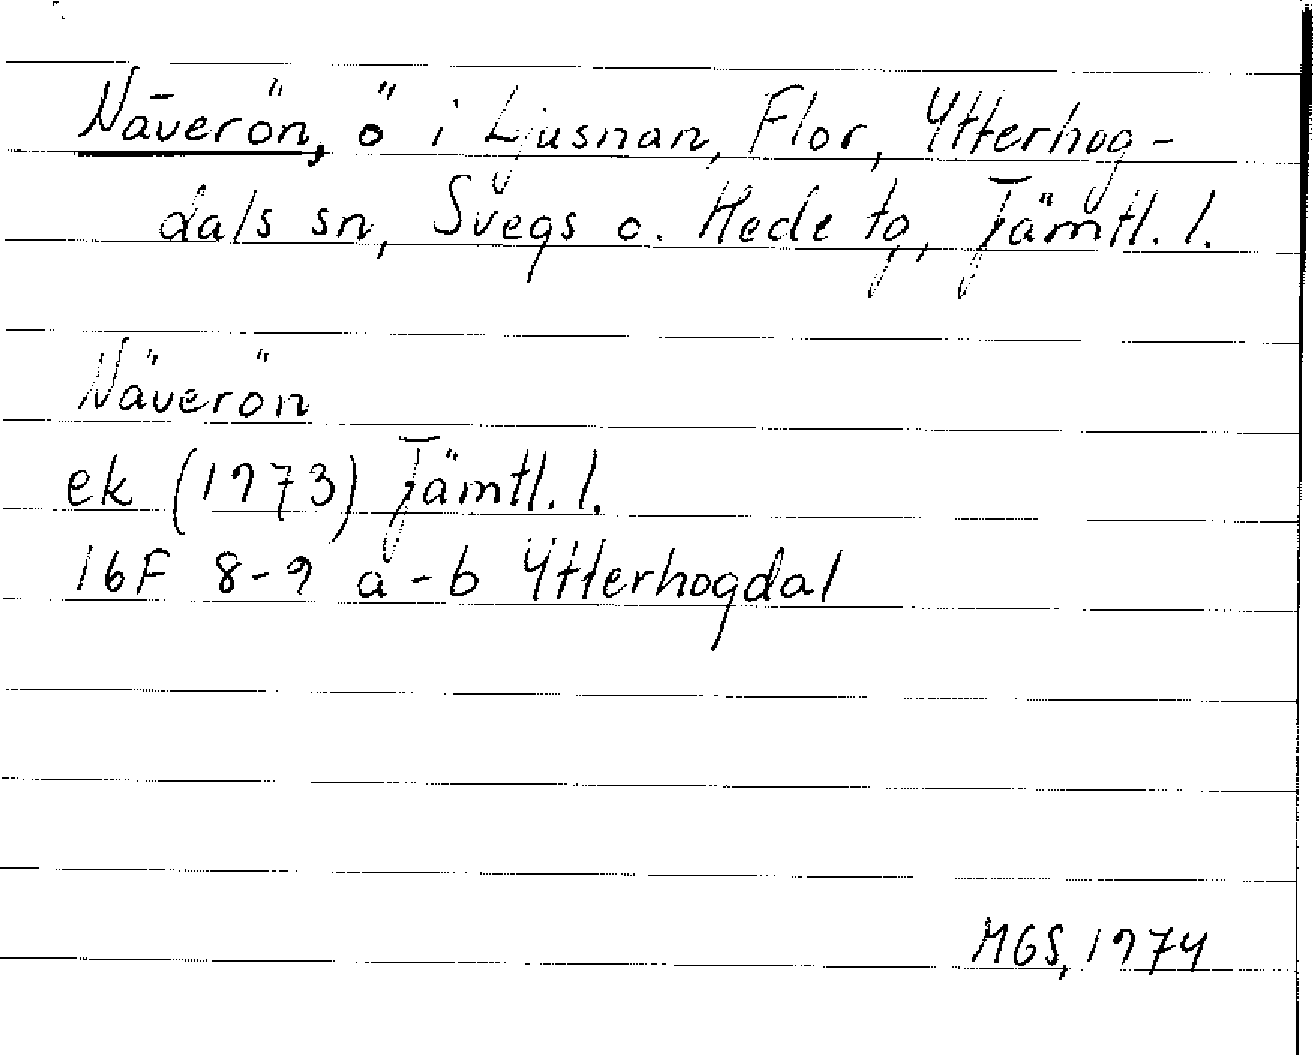 Näverön, ö i Ljusnan, Flor, Ytterhog-
dals sn, Svegs o. Hede tg, Jämtl. l.
Näverön
ek (1973) Jämtl. l.
16F 8-9 a-b Ytterhogdal
MGS, 1974